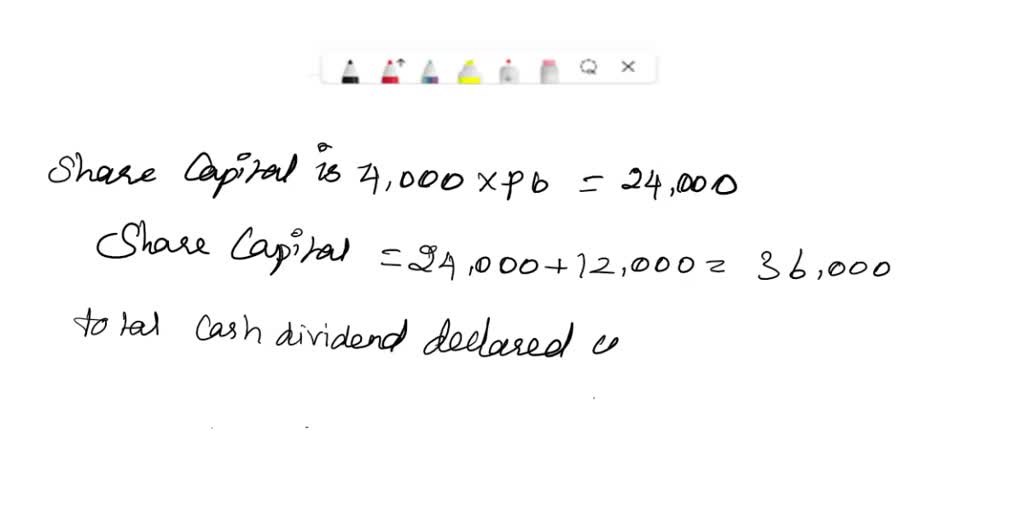 Share Capital is 4,000 x p6 = 24,000
Share Capital = 24,000 + 12,000 = 36,000
total cash dividend declared